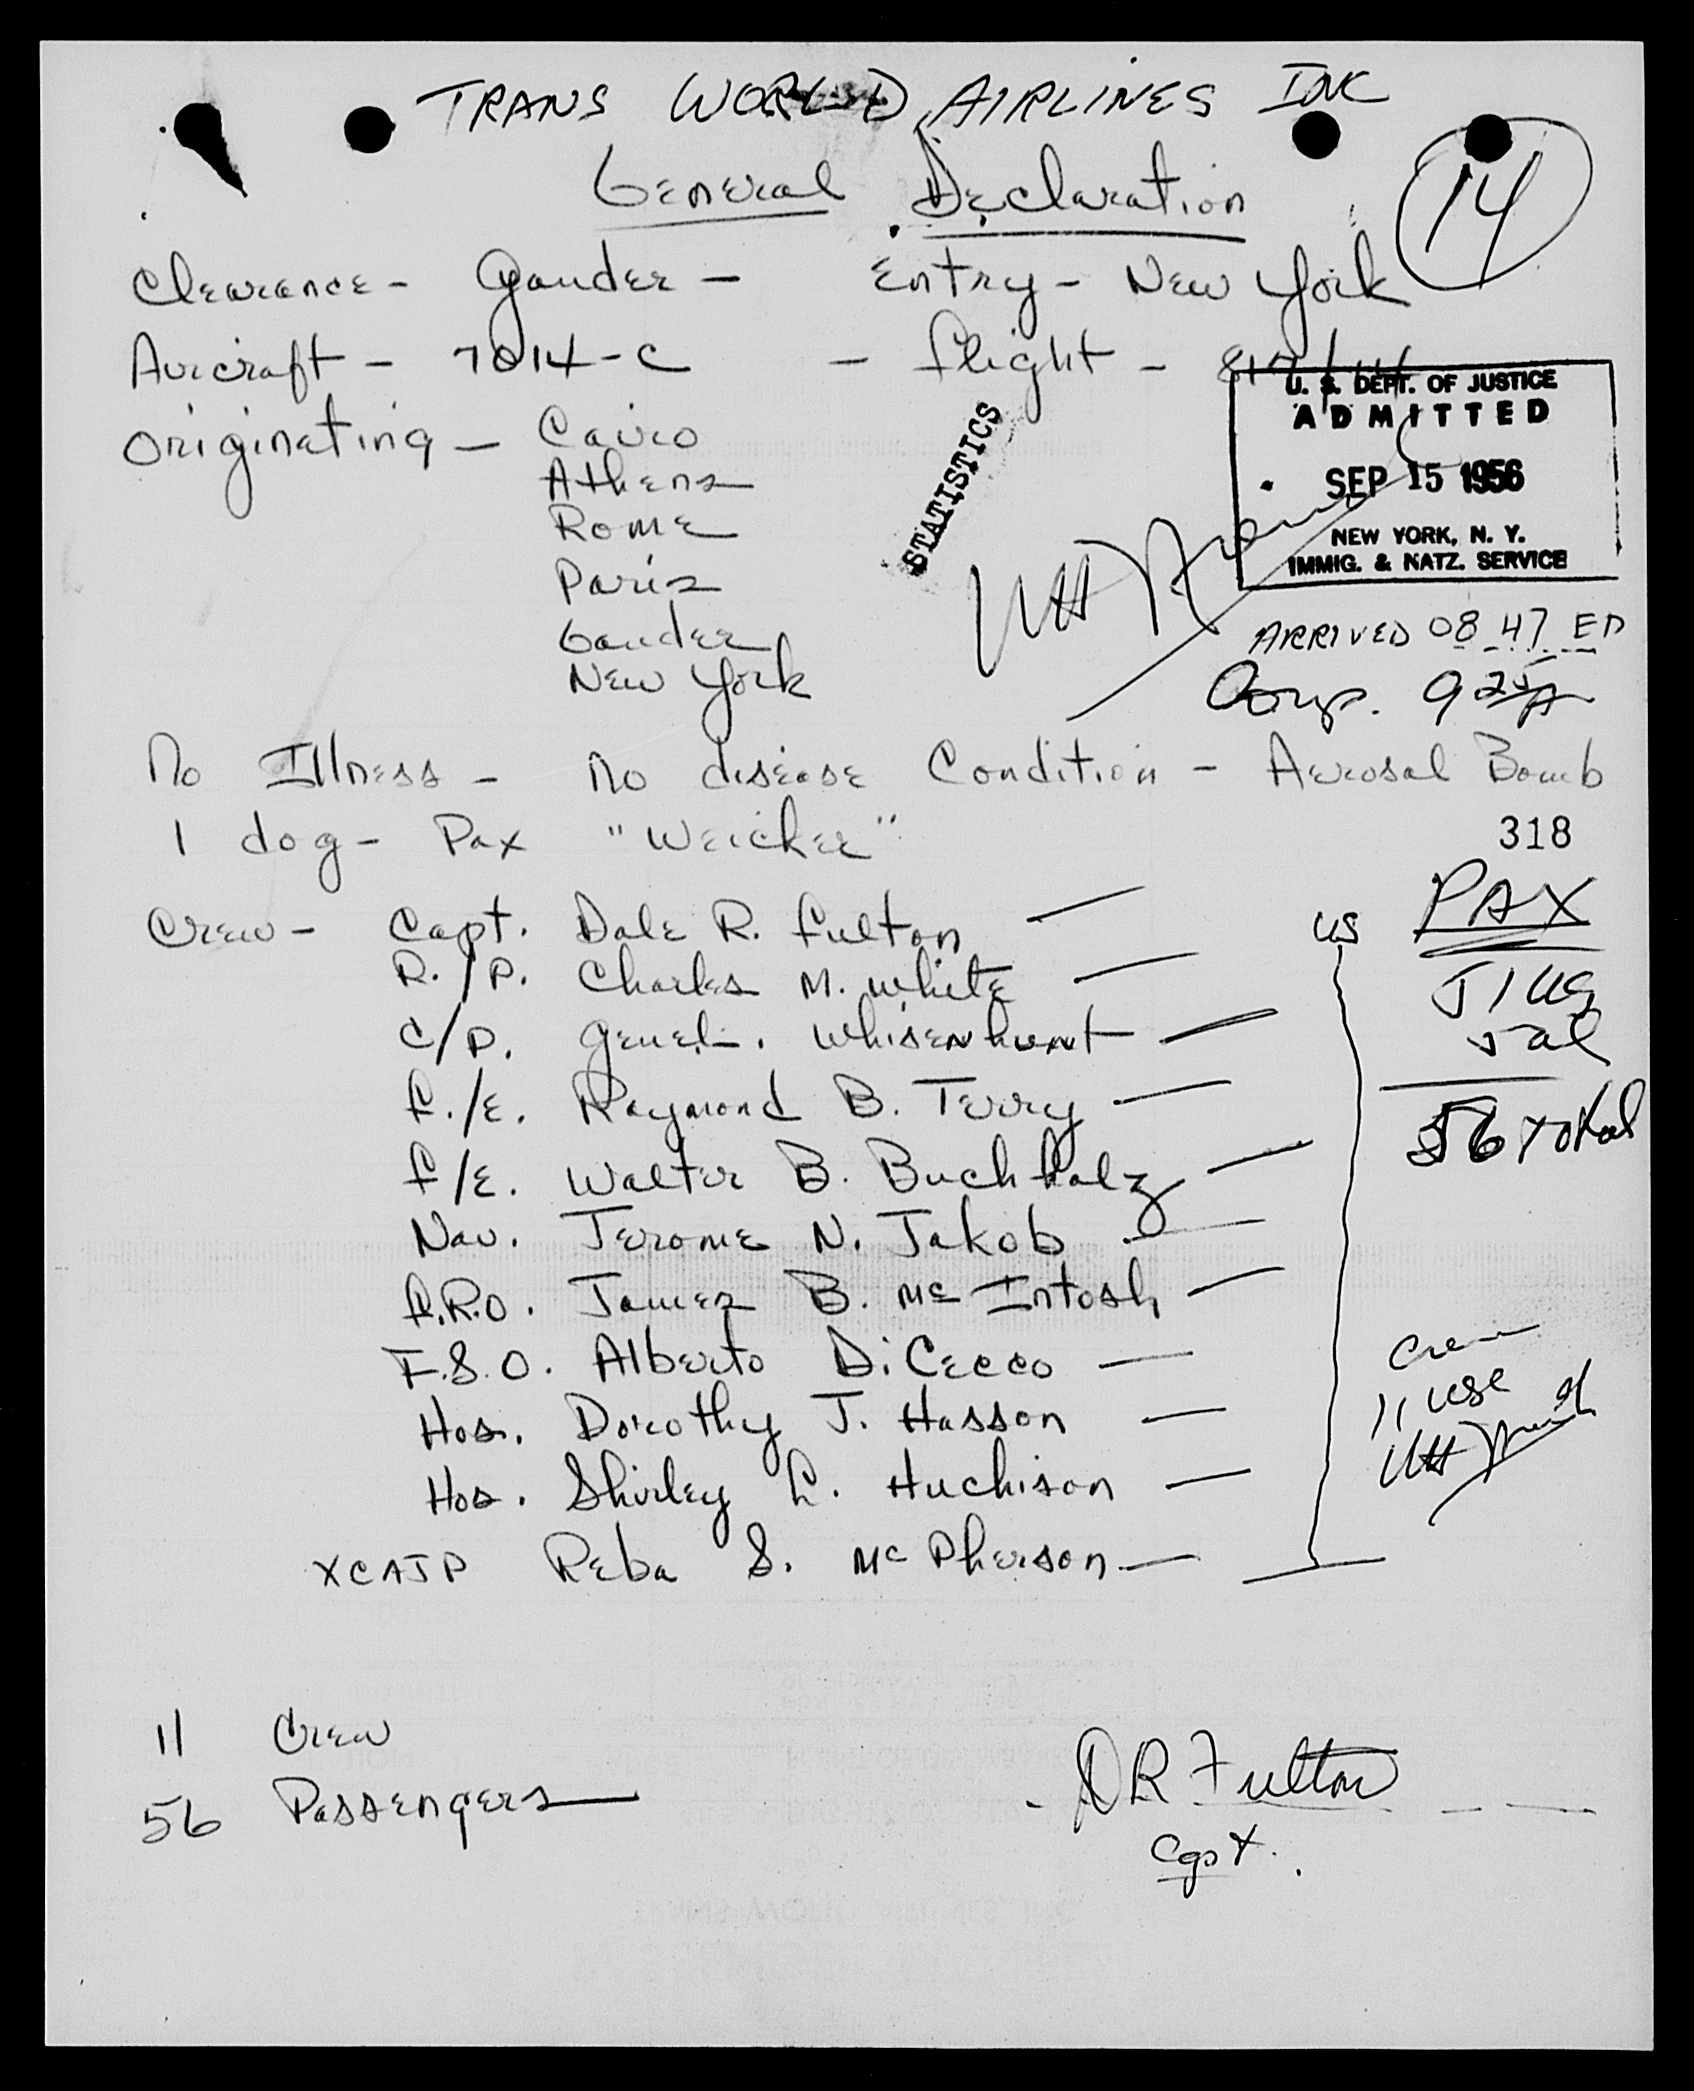 TRANS WORLD AIRLINES INC
General Declaration
14
Clearance - Gander - Entry - New York
Aircraft - 7014-C - flight -
U. S. DEPT. OF JUSTICE
ADMITTED
SEP 15 1956
NEW YORK, N. Y.
IMMIG. & NATZ. SERVICE
STATISTICS
Originating - Cairo
Athens
Rome
Paris
Gander
New York
ARRIVED 08 47 ED
Comp. 925A
No Illness - No disease Condition - Aerosal Bomb
1 dog - Pax "Weicker"
318
PAX
51 US
5 al
56 total
US
Crew - Capt. Dale R. Fulton
R./P. Charles M. White
C/P. Gene L. Whisenhunt
F./E. Raymond B. Terry
F/E. Walter B. Buchholz
Nav. Jerome N. Jakob
F.R.O. James B. McIntosh
F.S.O. Alberto DiCecco
Hos. Dorothy J. Hasson
Hos. Shirley L. Huchison
XCAJP Reba S. McPherson
Crew
11 USC
11 Crew
56 Passengers
DR Fulton
Capt.